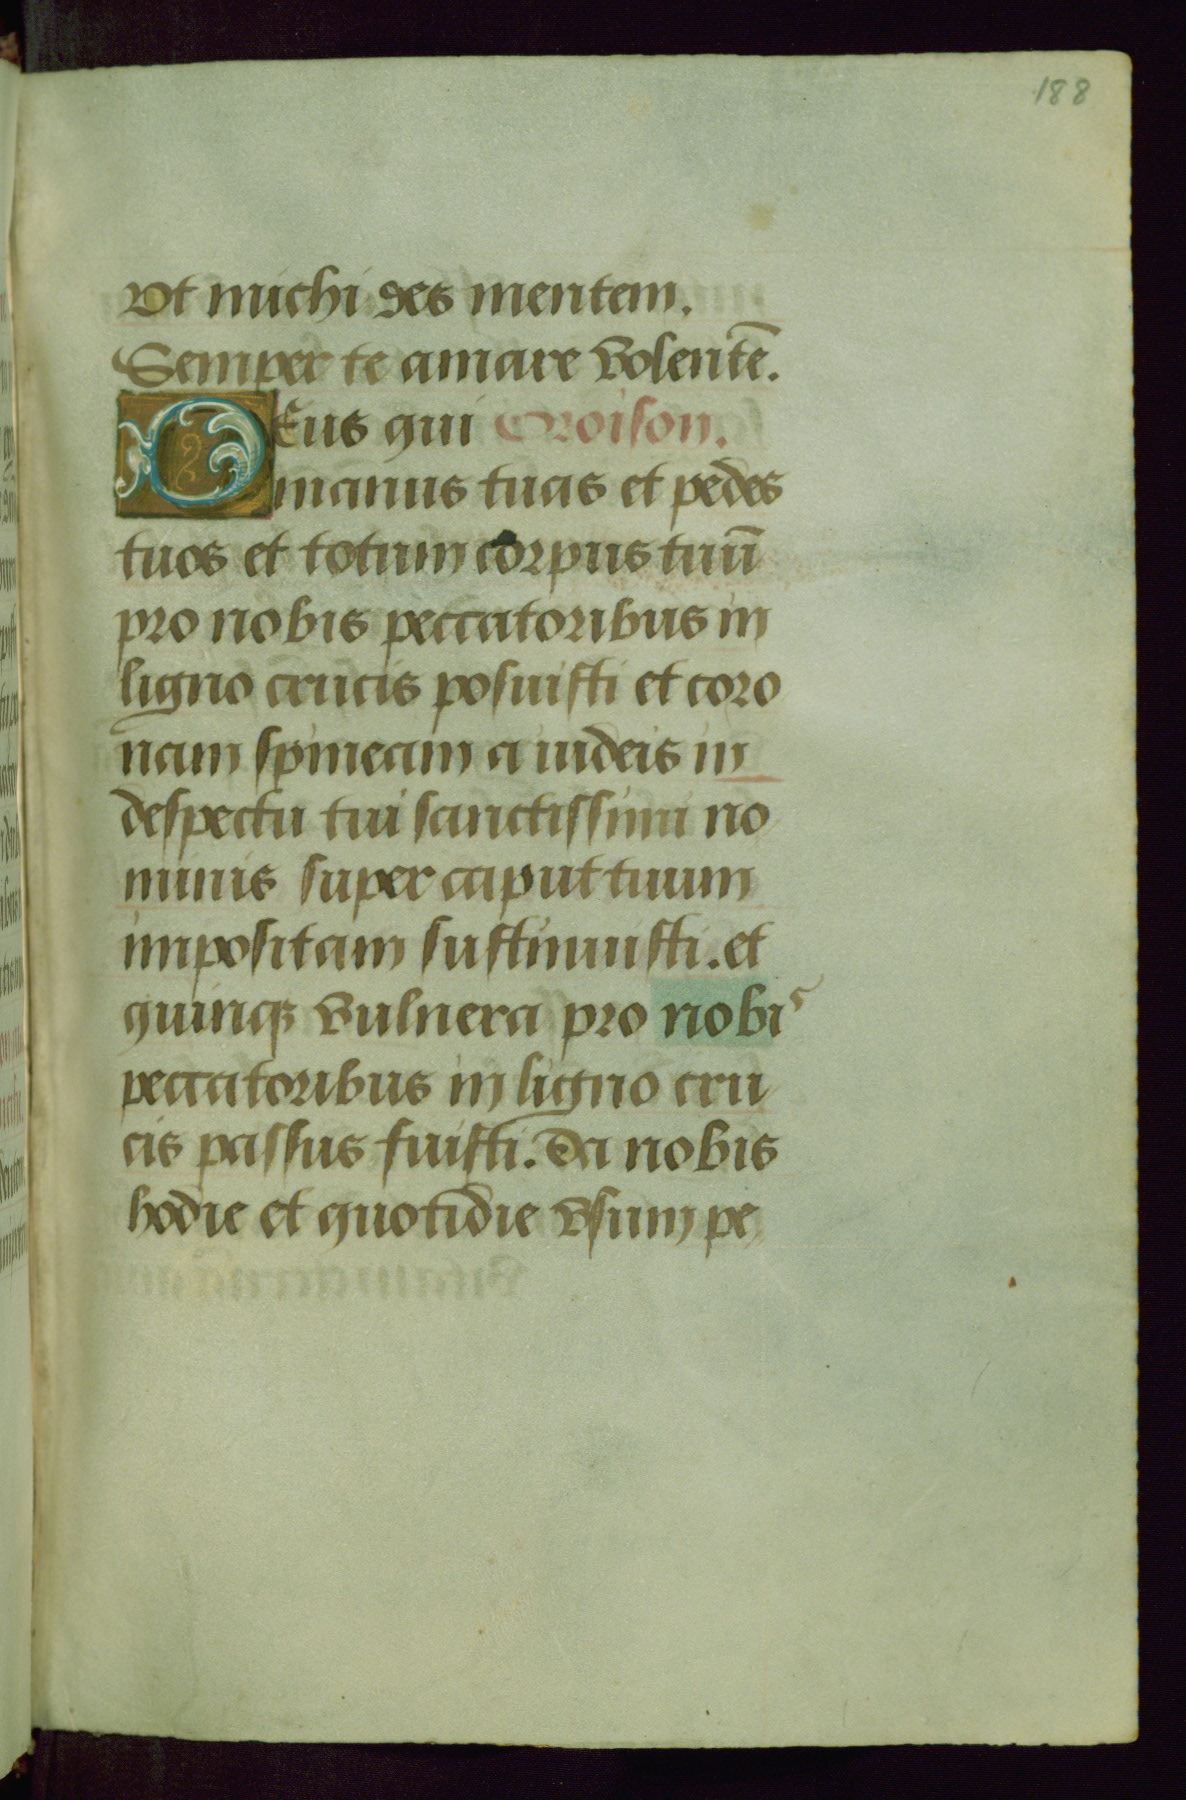 188
Ut michi des mentem.
Semper te amare volentē.
Deus qui Oroison.
manus tuas et pedes
tuos et totum corpus tuū
pro nobis peccatoribus in
ligno crucis posuisti et coro
nam spineam a iudeis in
despectu tui sanctissimi no
minis super caput tuum
impositam sustinuisti. et
quinqꝫ vulnera pro nobis
peccatoribus in ligno cru
cis passus fuisti. Da nobis
hodie et quotidie vsum pe